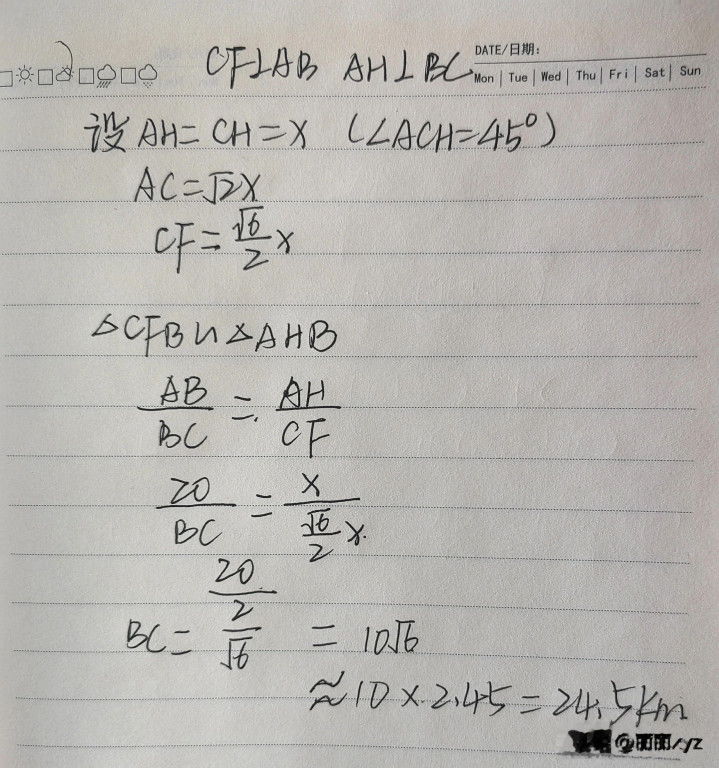 DATE/日期:
CF⊥AB AH⊥BC
Mon | Tue | Wed | Thu | Fri | Sat | Sun
设 AH=CH=x (∠ACH=45°)
AC=√2x
CF=√6/2 x
△CFB∽△AHB
AB/BC=AH/CF
20/BC=x/(√6/2 x)
BC=20/(2/√6)=10√6
≈10×2.45=24.5km
@囬囬xyz